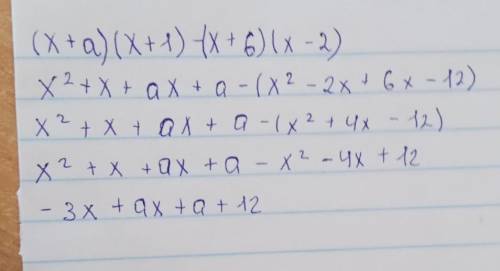 (x+a)(x+1)-(x+6)(x-2)
x²+x+ax+a-(x²-2x+6x-12)
x²+x+ax+a-(x²+4x-12)
x²+x+ax+a-x²-4x+12
-3x+ax+a+12